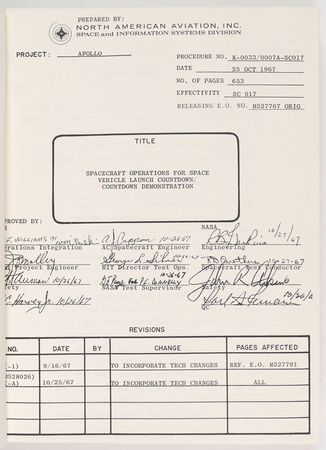 PREPARED BY:
NORTH AMERICAN AVIATION, INC.
SPACE and INFORMATION SYSTEMS DIVISION
PROJECT: APOLLO
PROCEDURE NO. K-0033/0007A-SC017
DATE 25 OCT 1967
NO. OF PAGES 653
EFFECTIVITY SC 017
RELEASING E.O. NO. M527767 ORIG
TITLE
SPACECRAFT OPERATIONS FOR SPACE
VEHICLE LAUNCH COUNTDOWN/
COUNTDOWN DEMONSTRATION
PROVED BY:
NASA
10/27/67
10-26-67
erations Integration AC Spacecraft Engineer Engineering
10-27-67
Project Engineer MIT Director Test Ops. Spacecraft Test Conductor
10/26/67 10-26-67 FOR
fety NASA Test Supervisor Safety
10/26/67
QC
REVISIONS
NO. DATE BY CHANGE PAGES AFFECTED
(-1) 9/16/67 TO INCORPORATE TECH CHANGES REF. E.O. M527791
M528026)
(-A) 10/25/67 TO INCORPORATE TECH CHANGES ALL